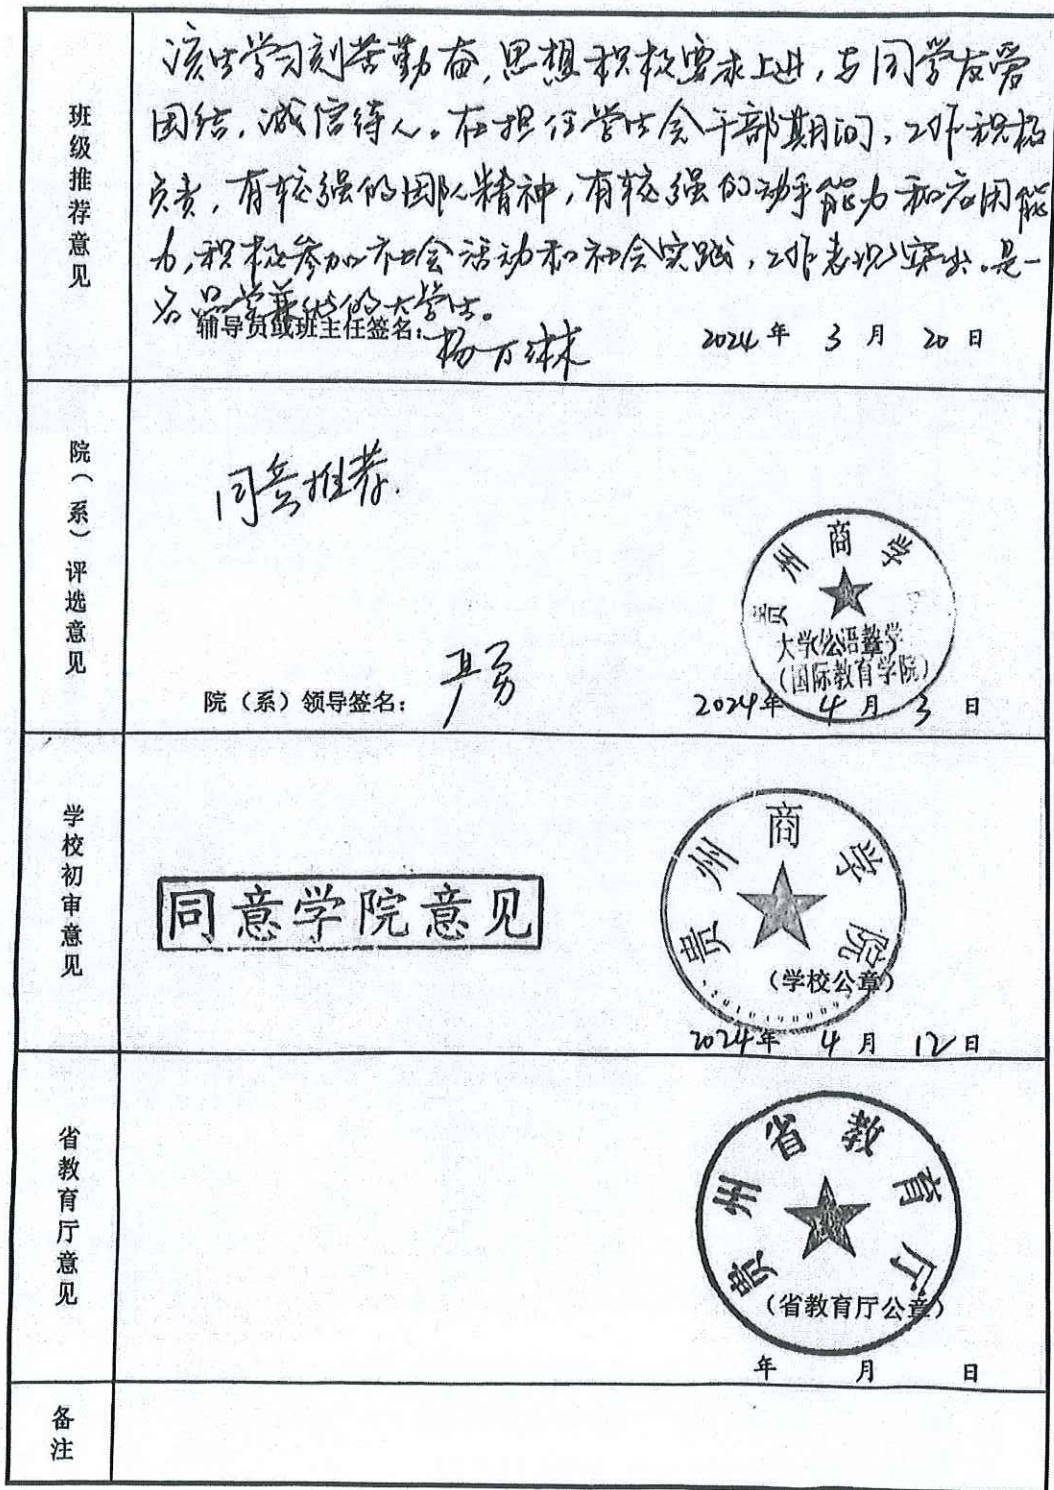 班级推荐意见
该生学习刻苦勤奋,思想积极要求上进,与同学友爱
团结,诚信待人。在担任学生会干部期间,工作积极
负责,有较强的团队精神,有较强的动手能力和应用能
力,积极参加社会活动和社会实践,工作表现突出。是一
名品学兼优的大学生。
辅导员或班主任签名:
2024年 3月 20日
院(系)评选意见
同意推荐.
贵州商学
大学 语教学
(国际教育学院)
院(系)领导签名:
2024年 4月 3日
学校初审意见
同意学院意见
贵州商学院
(学校公章)
2024年 4月 12日
省教育厅意见
贵州省教育厅
(省教育厅公章)
年 月 日
备注